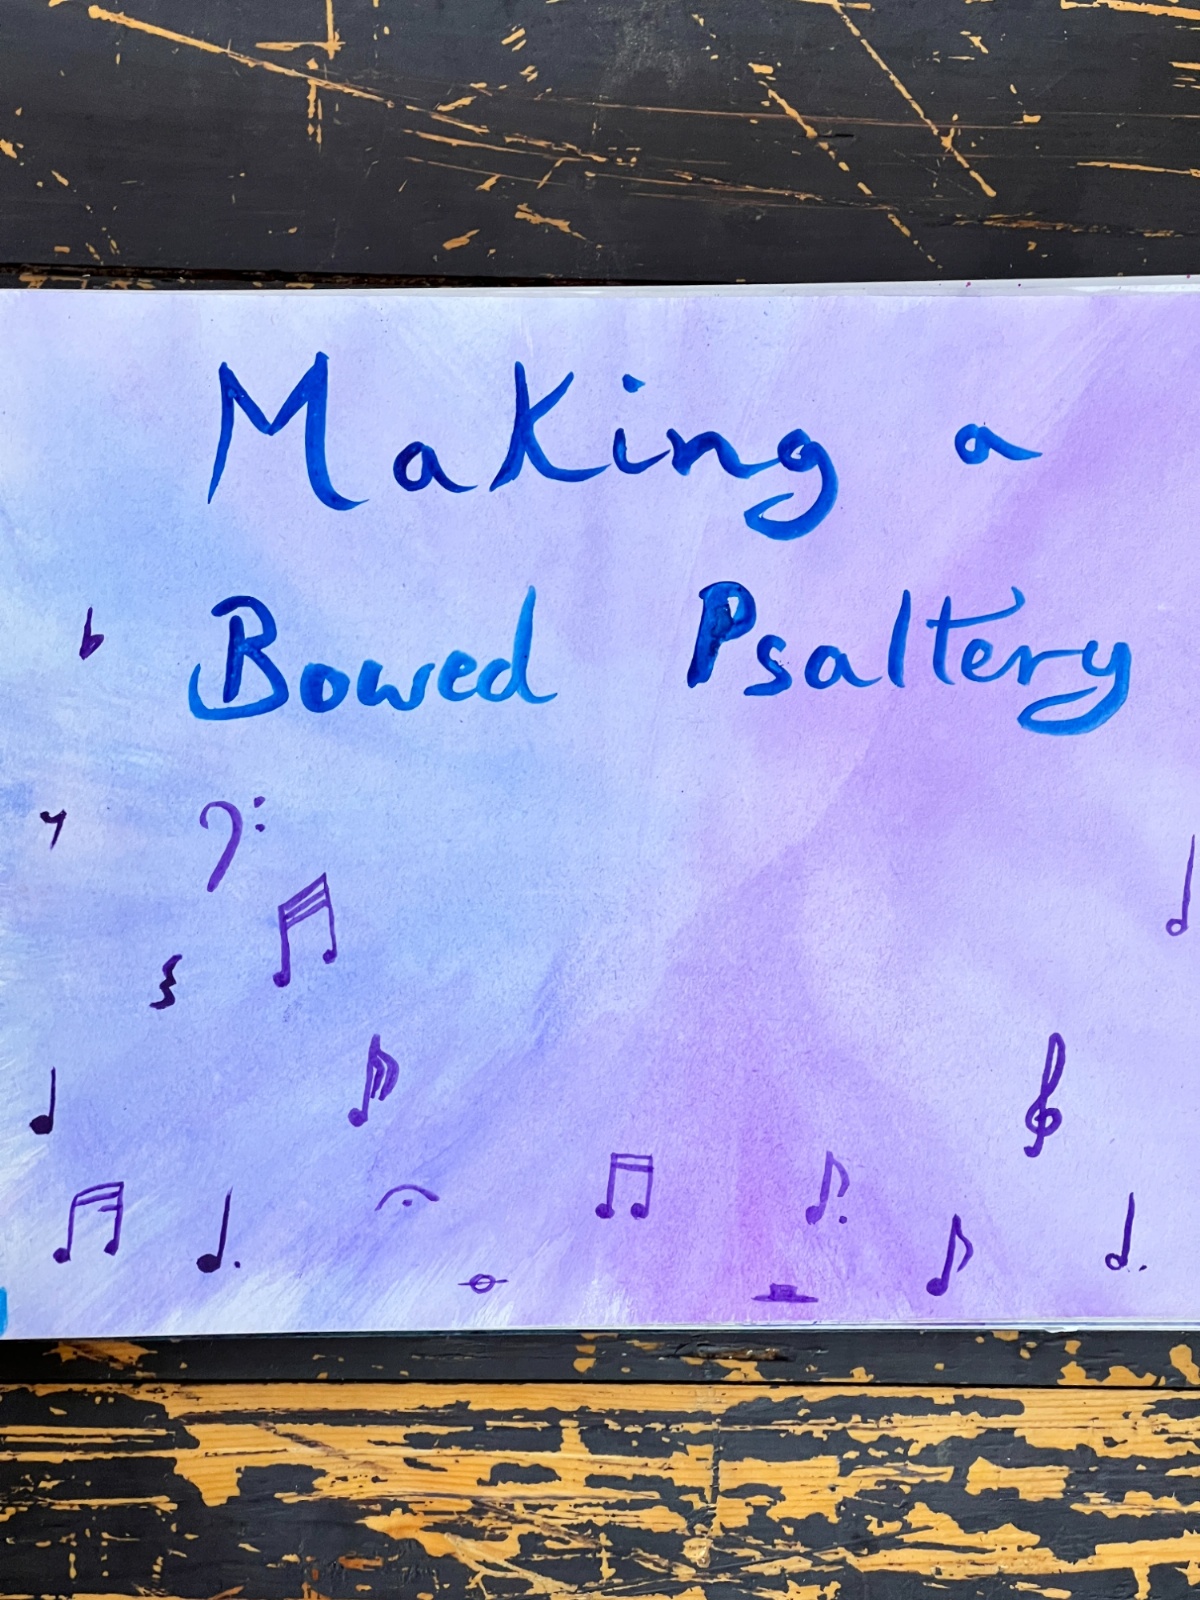 Making a
Bowed Psaltery